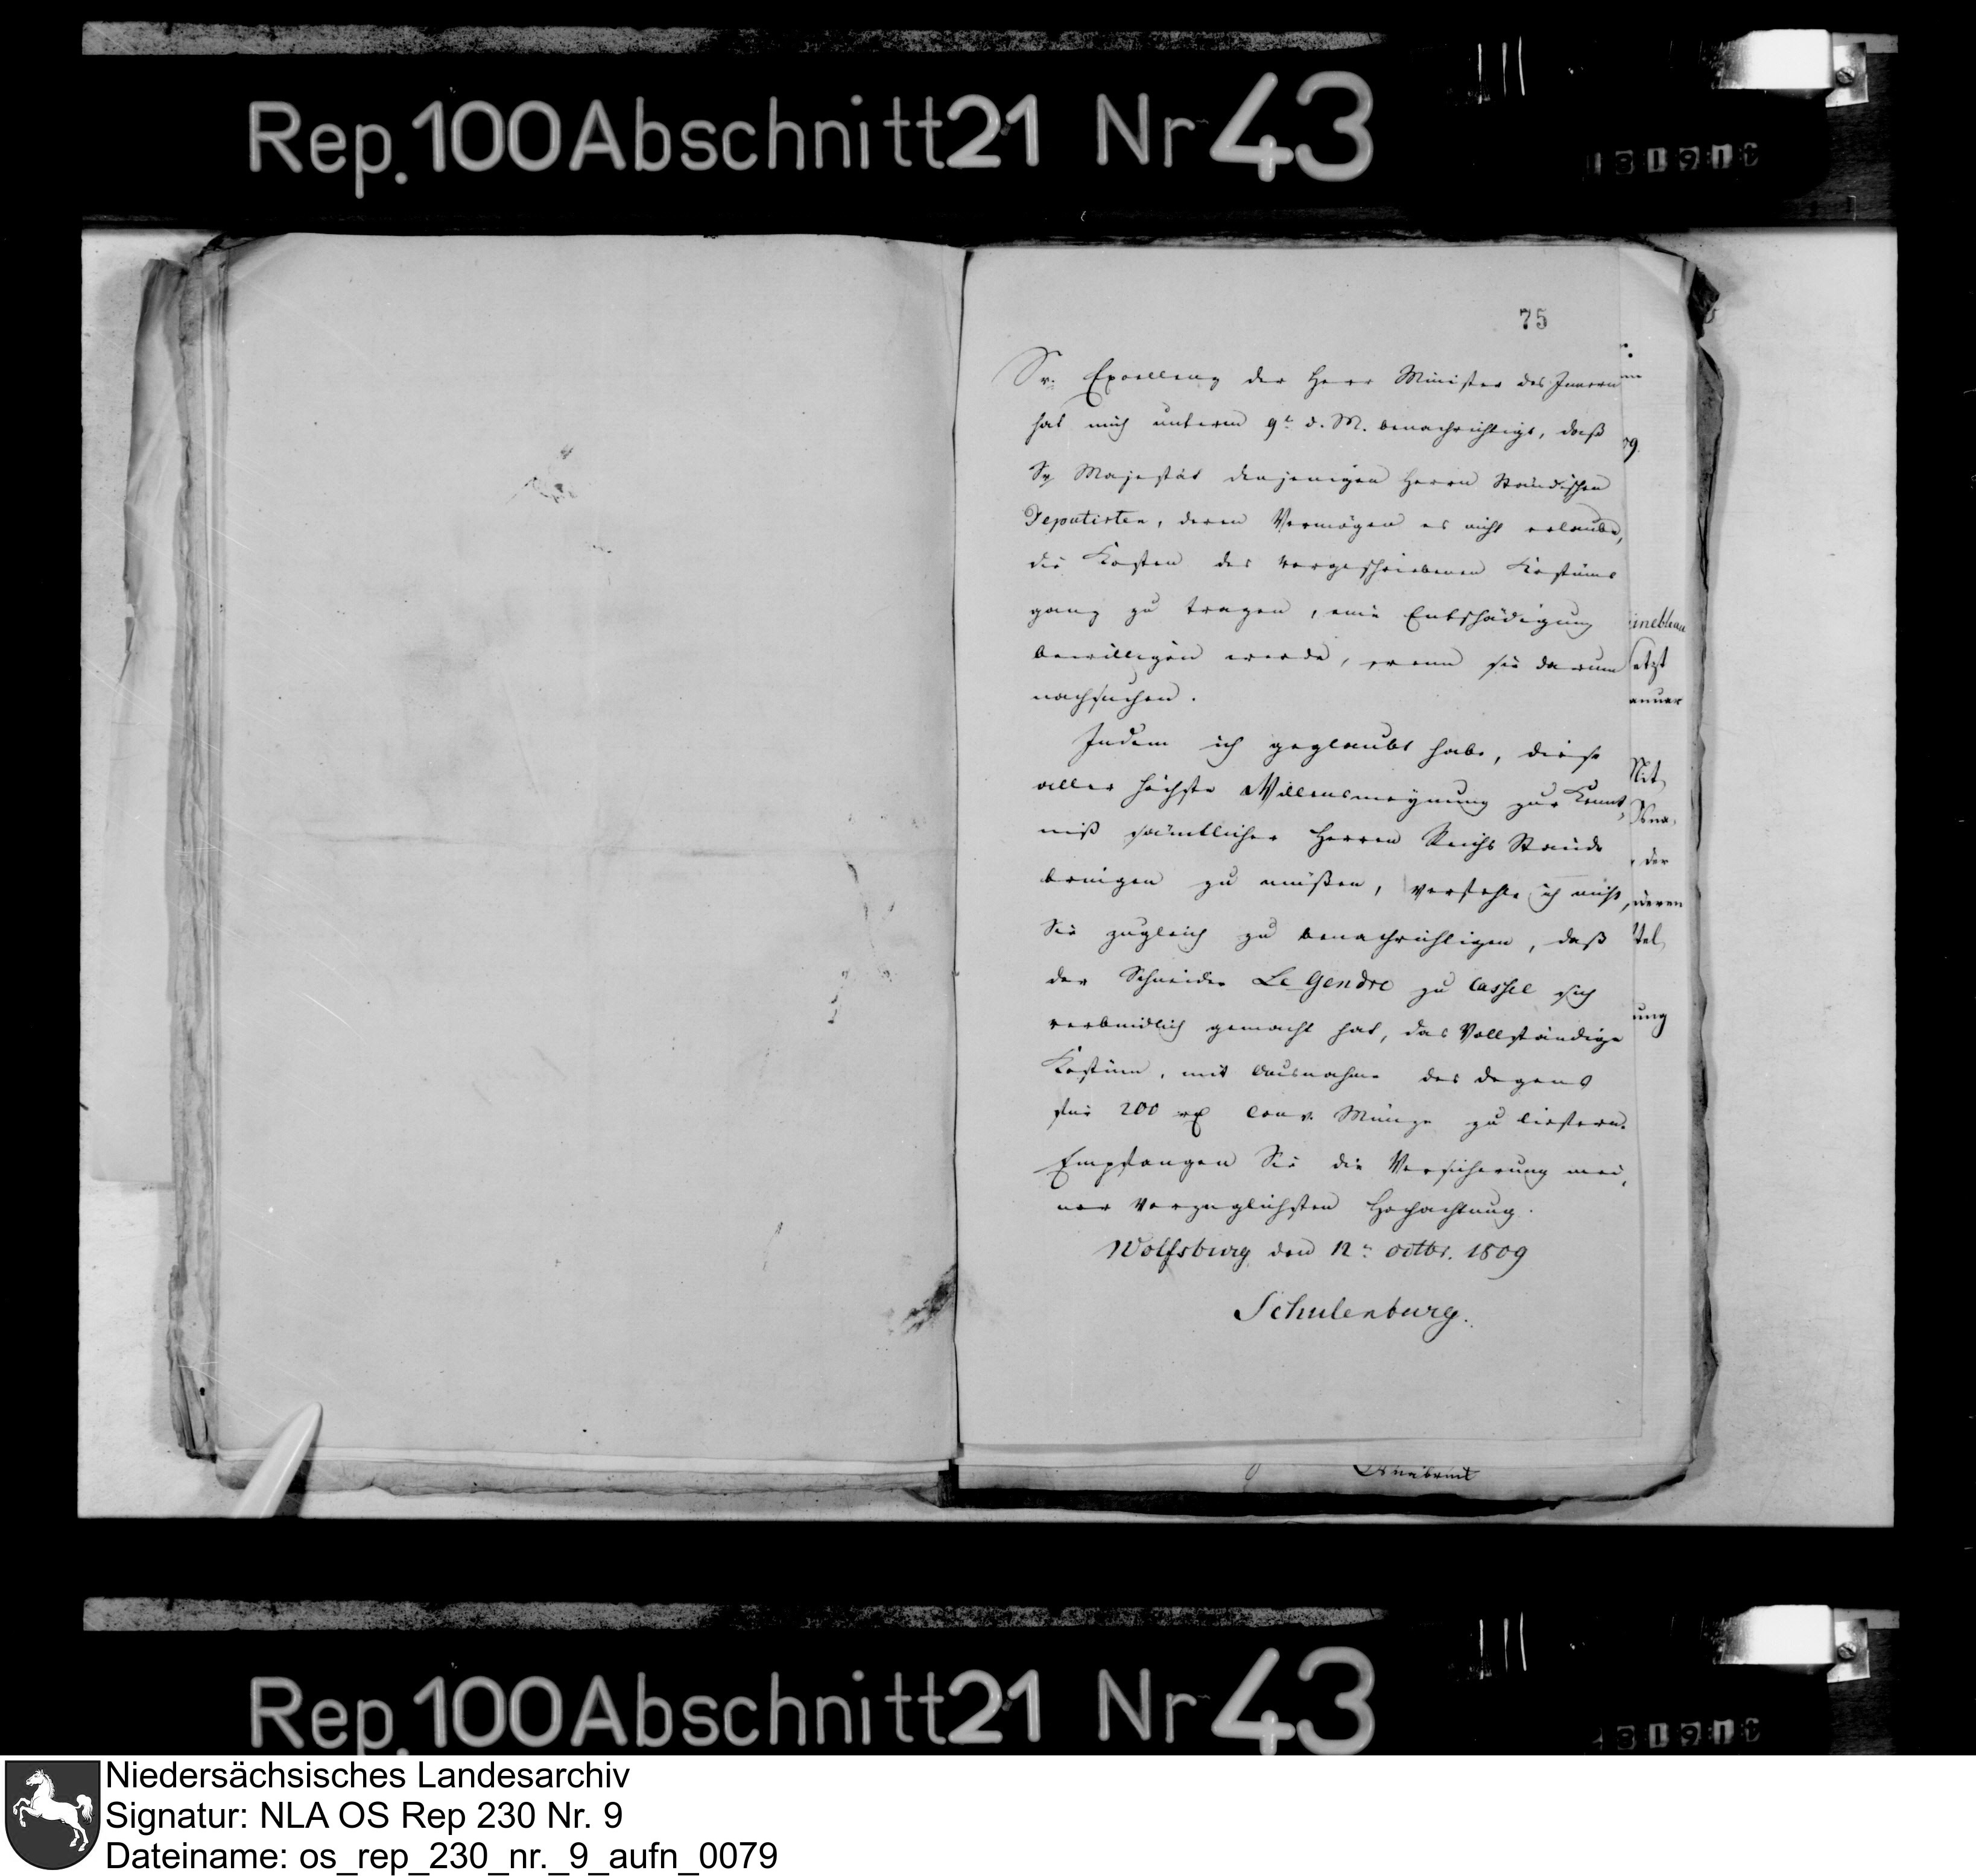 Rep. 100 Abschnitt 21 Nr 43
75
Sr. Excellenz der Herr Minister des Innern
hat mich unterm 9t d. M. benachrichtigt, daß
Se Majestät denjenigen Herrn Ständischen
Deputirten, deren Vermögen es nicht erlaube,
die Kosten des vorgeschriebenen Kostüms
ganz zu tragen, eine Entschädigung
bewilligen werde, wenn sie darum
nachsuchen.
Indem ich geglaubt habe, diese
aller höchste Willensmeynung zur Kennt,
niß sämtlicher Herren Reichs Stände
bringen zu müßen, verfehle ich nicht,
Sie zugleich zu benachrichtigen, daß
der Schneider Le Gendre zu Cassel sich
verbindlich gemacht hat, das Vollständige
Kostüm, mit Ausnahme des Degens
für 200 rx Conv. Münze zu liefern.
Empfangen Sie die Versicherung mei,
ner vorzüglichsten Hochachtung.
Wolfsburg den 12n octbr. 1809
Schulenburg.
09.
inebleau
setzt
anuar
Mit,
Osna,
der
ieren
ttel,
ung
Osnabrück
Rep. 100 Abschnitt 21 Nr 43
Niedersächsisches Landesarchiv
Signatur: NLA OS Rep 230 Nr. 9
Dateiname: os_rep_230_nr._9_aufn_0079